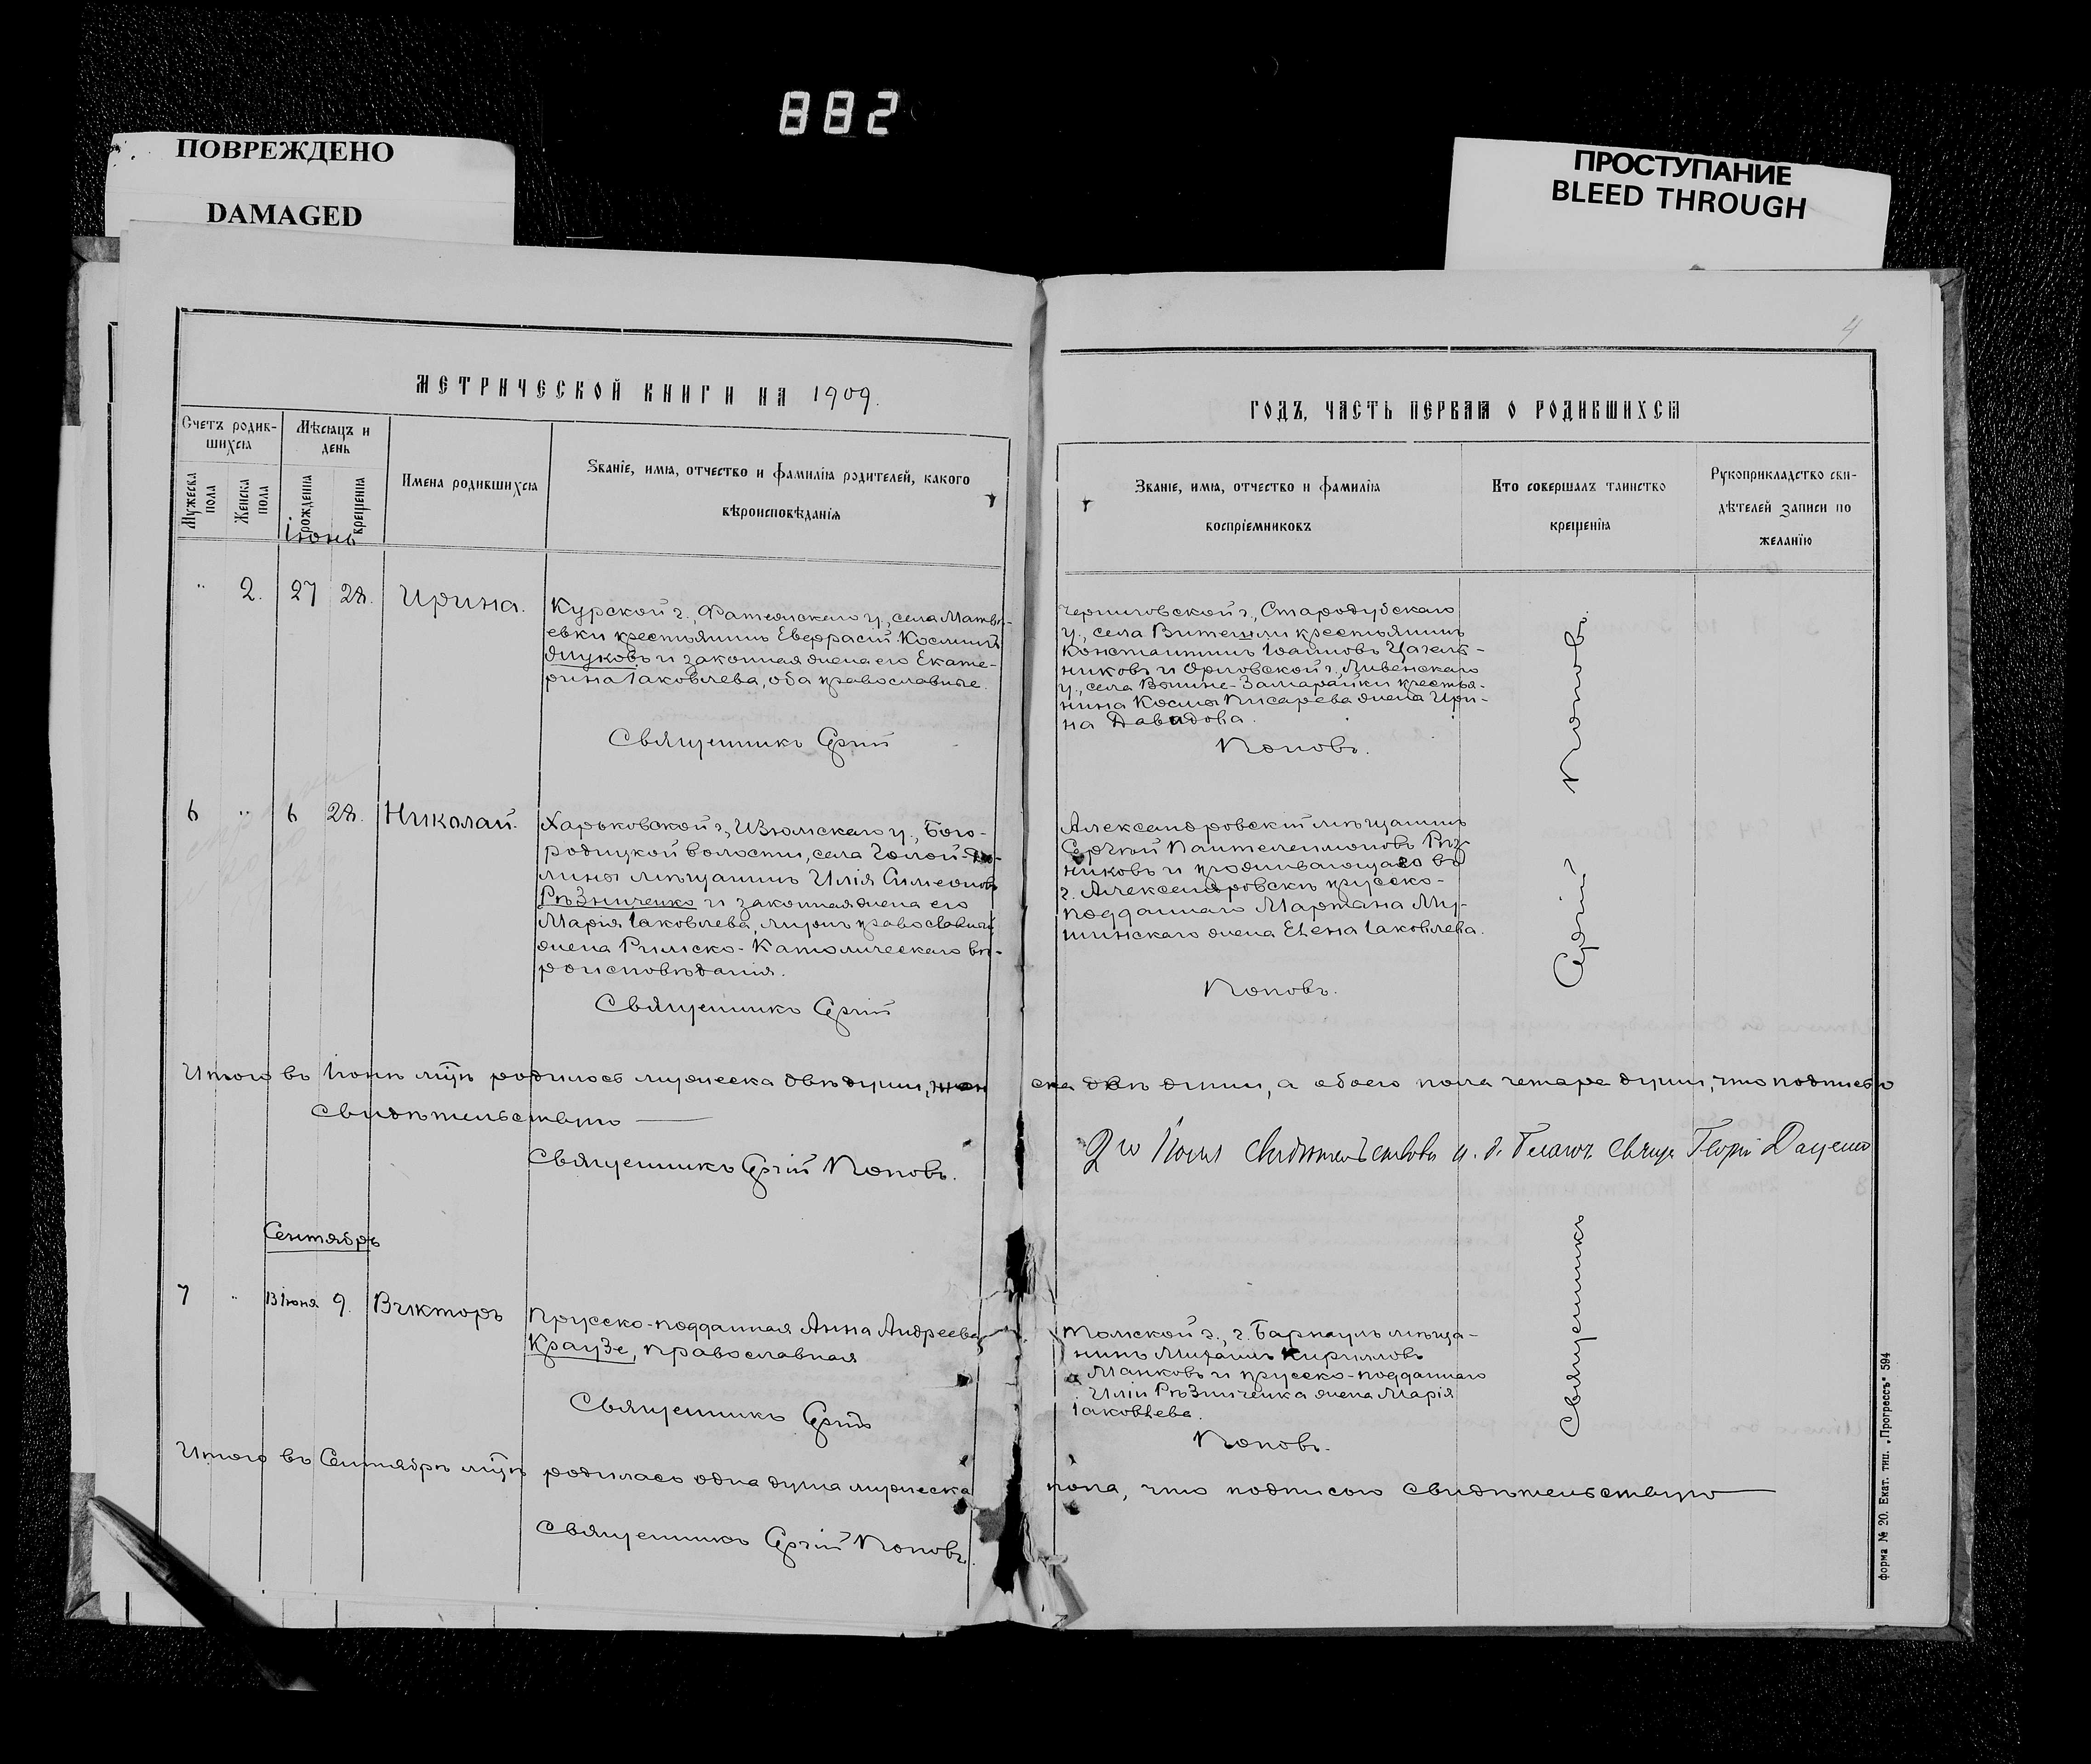 882
ПОВРЕЖДЕНО
DAMAGED
ПРОСТУПАНИЕ
BLEED THROUGH
4
МЕТРИЧЕСКОЙ КНИГИ НА 1909.
ГОДЪ, ЧАСТЬ ПЕРВАЯ О РОДИВШИХСЯ
Счетъ родив-
шихся
Мужеска пола
Женска пола
Мѣсяцъ и
день
рожденія
крещенія
Имена родившихся
Званіе, имя, отчество и фамилія родителей, какого
вѣроисповѣданія
Званіе, имя, отчество и фамилія
воспріемниковъ
Кто совершалъ таинство
крещенія
Рукоприкладство сви-
дѣтелей записи по
желанію
Іюнь
" 2. 27 28. Ирина.
Курской г., Фатежскаго у., села Матвѣ-
евки крестьянинъ Евфрасій Косминъ
и законная жена его Екате-
рина Іаковлева, оба православные.
Священникъ Сергій
Черниговской г., Стародубскаго
у., села крестьянинъ
Константинъ Іоанновъ
никовъ и Орловской г., Ливенскаго
у., села крестья-
нина Космы Писарева жена Ири-
на Давидова.
Поповъ.
6 " 6 28. Николай.
Харьковской г., Изюмскаго у., Бого-
родицкой волости, села Голой-До-
лины мѣщанинъ Илія Симеоновъ
Рѣзниченко и законная жена его
Марія Іаковлева, мужъ православный,
жена Римско-Католическаго вѣ-
роисповѣданія.
Священникъ Сергій
Александровскій мѣщанинъ
Сергѣй Пантелеимоновъ Рѣз-
никовъ и проживающаго въ
г. Александровскѣ прусско-
подданнаго Мартана Му-
шинскаго жена Елена Іаковлева.
Поповъ.
Священникъ Сергій Поповъ.
Итого въ Іюнѣ м̃цѣ родилось мужеска двѣ души, жен
ска двѣ души, а обоего пола четыре души, что подписью
свидѣтельствую
Священникъ Сергій Поповъ.
2го Іюля свидѣтельствовалъ и. д. Благоч. Свящ. Георгій Даценко
Сентябрь
7 " 13 Іюня 9. Викторъ
Прусско-подданная Анна Андреева
Краузе, православная
Священникъ Сергій
Томской г., г. Барнаулъ мѣща-
нинъ Михаилъ Кирилловъ
Манковъ и прусско-подданнаго
Иліи Рѣзниченка жена Марія
Іаковлева.
Поповъ.
Итого въ Сентябрѣ м̃цѣ родилась одна душа мужеска
пола, что подписью свидѣтельствую
Священникъ Сергій Поповъ.
Форма № 20. Екат. тип. „Прогрессъ" 594